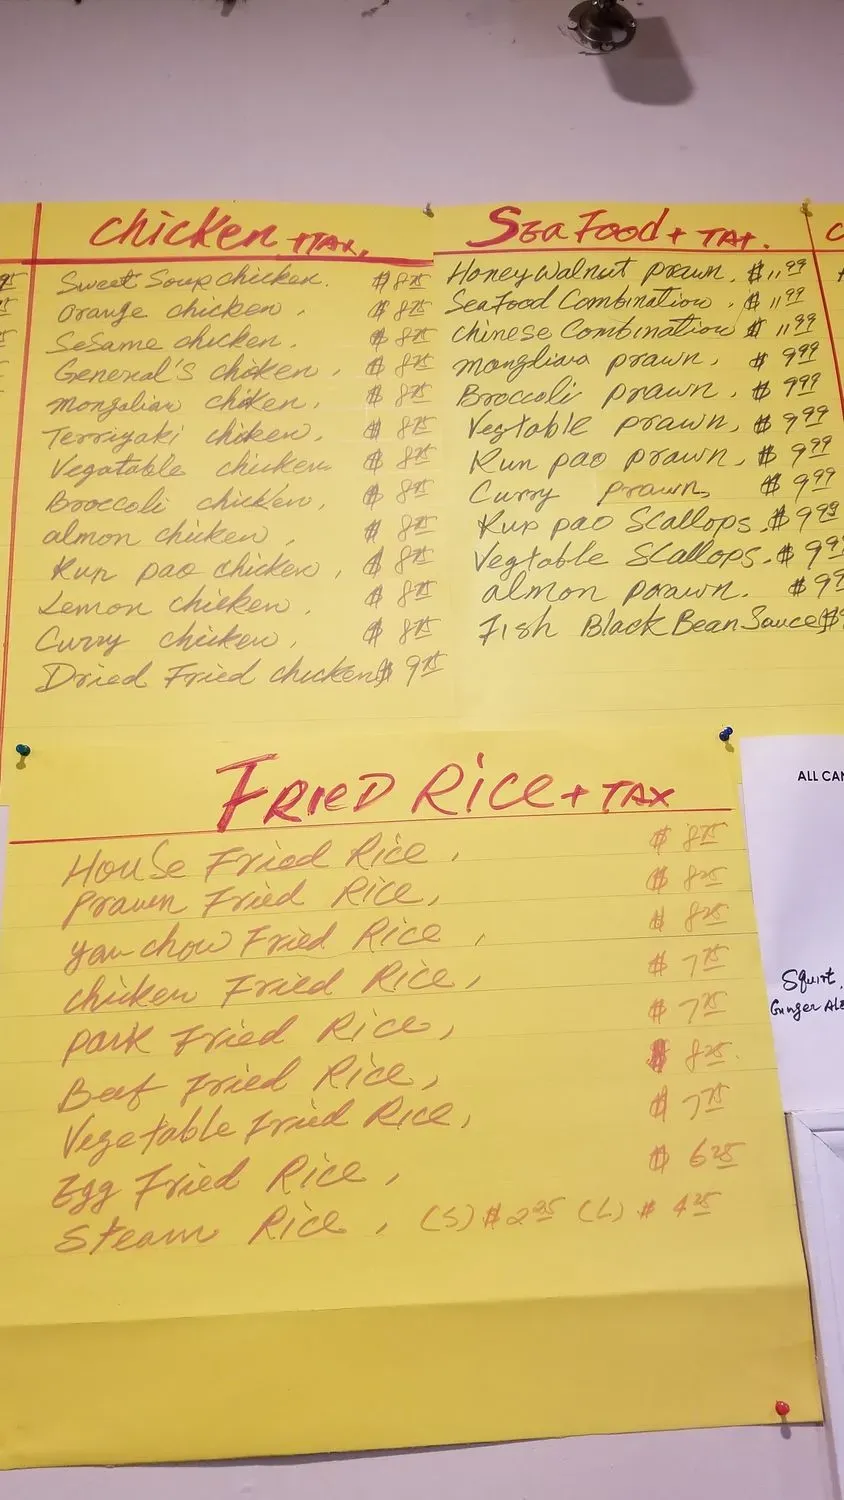 Chicken +TAX.
Sweet Soup chicken. $8.75
orange chicken, $8.75
SeSame chicken. $8.75
General's chiken, $8.75
mongolian chiken, $8.75
Terriyaki chiken, $8.75
Vegatable chicken $8.75
Broccoli chicken, $8.75
almon chicken, $8.75
Kun pao chicken, $8.75
Lemon chicken. $8.75
Curry chicken, $8.75
Dried Fried chicken $9.75
Sea Food + TAX.
Honey Walnut prawn. $11.99
Sea Food Combination. $11.99
Chinese Combination $11.99
prawn, $9.99
Broccoli prawn, $9.99
Vegtable prawn, $9.99
Kun pao prawn, $9.99
Curry prawn, $9.99
Kun pao Scallops. $9.99
Vegtable Scallops. $9.9
almon prawn. $9.9
Fish Black Bean Sauce $9
FRIED RICE + TAX
House Fried Rice, $8.75
Prawn Fried Rice, $8.25
yan-chow Fried Rice, $8.25
chicken Fried Rice, $7.75
park Fried Rice, $7.75
Beef Fried Rice, $8.25
Vegetable Fried Rice, $7.75
Egg Fried Rice, $6.25
Steam Rice, (S) $2.25 (L) $4.25
ALL CAN
Squirt,
Gunger Ale